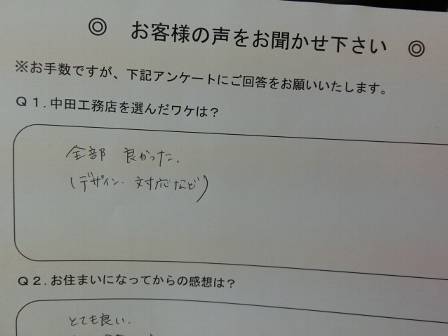 ◎ お客様の声をお聞かせ下さい ◎
※お手数ですが、下記アンケートにご回答をお願いいたします。
Q1.中田工務店を選んだワケは?
全部 良かった.
(デザイン・対応など)
Q2.お住まいになってからの感想は?
とても良い.